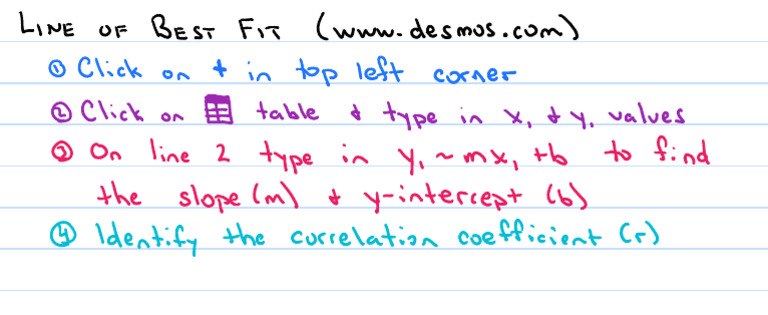 LINE OF BEST FIT (www.desmos.com)
① Click on + in top left corner
② Click on table & type in x₁ & y₁ values
③ On line 2 type in y₁ ~ mx₁ + b to find
the slope (m) & y-intercept (b)
④ Identify the correlation coefficient (r)